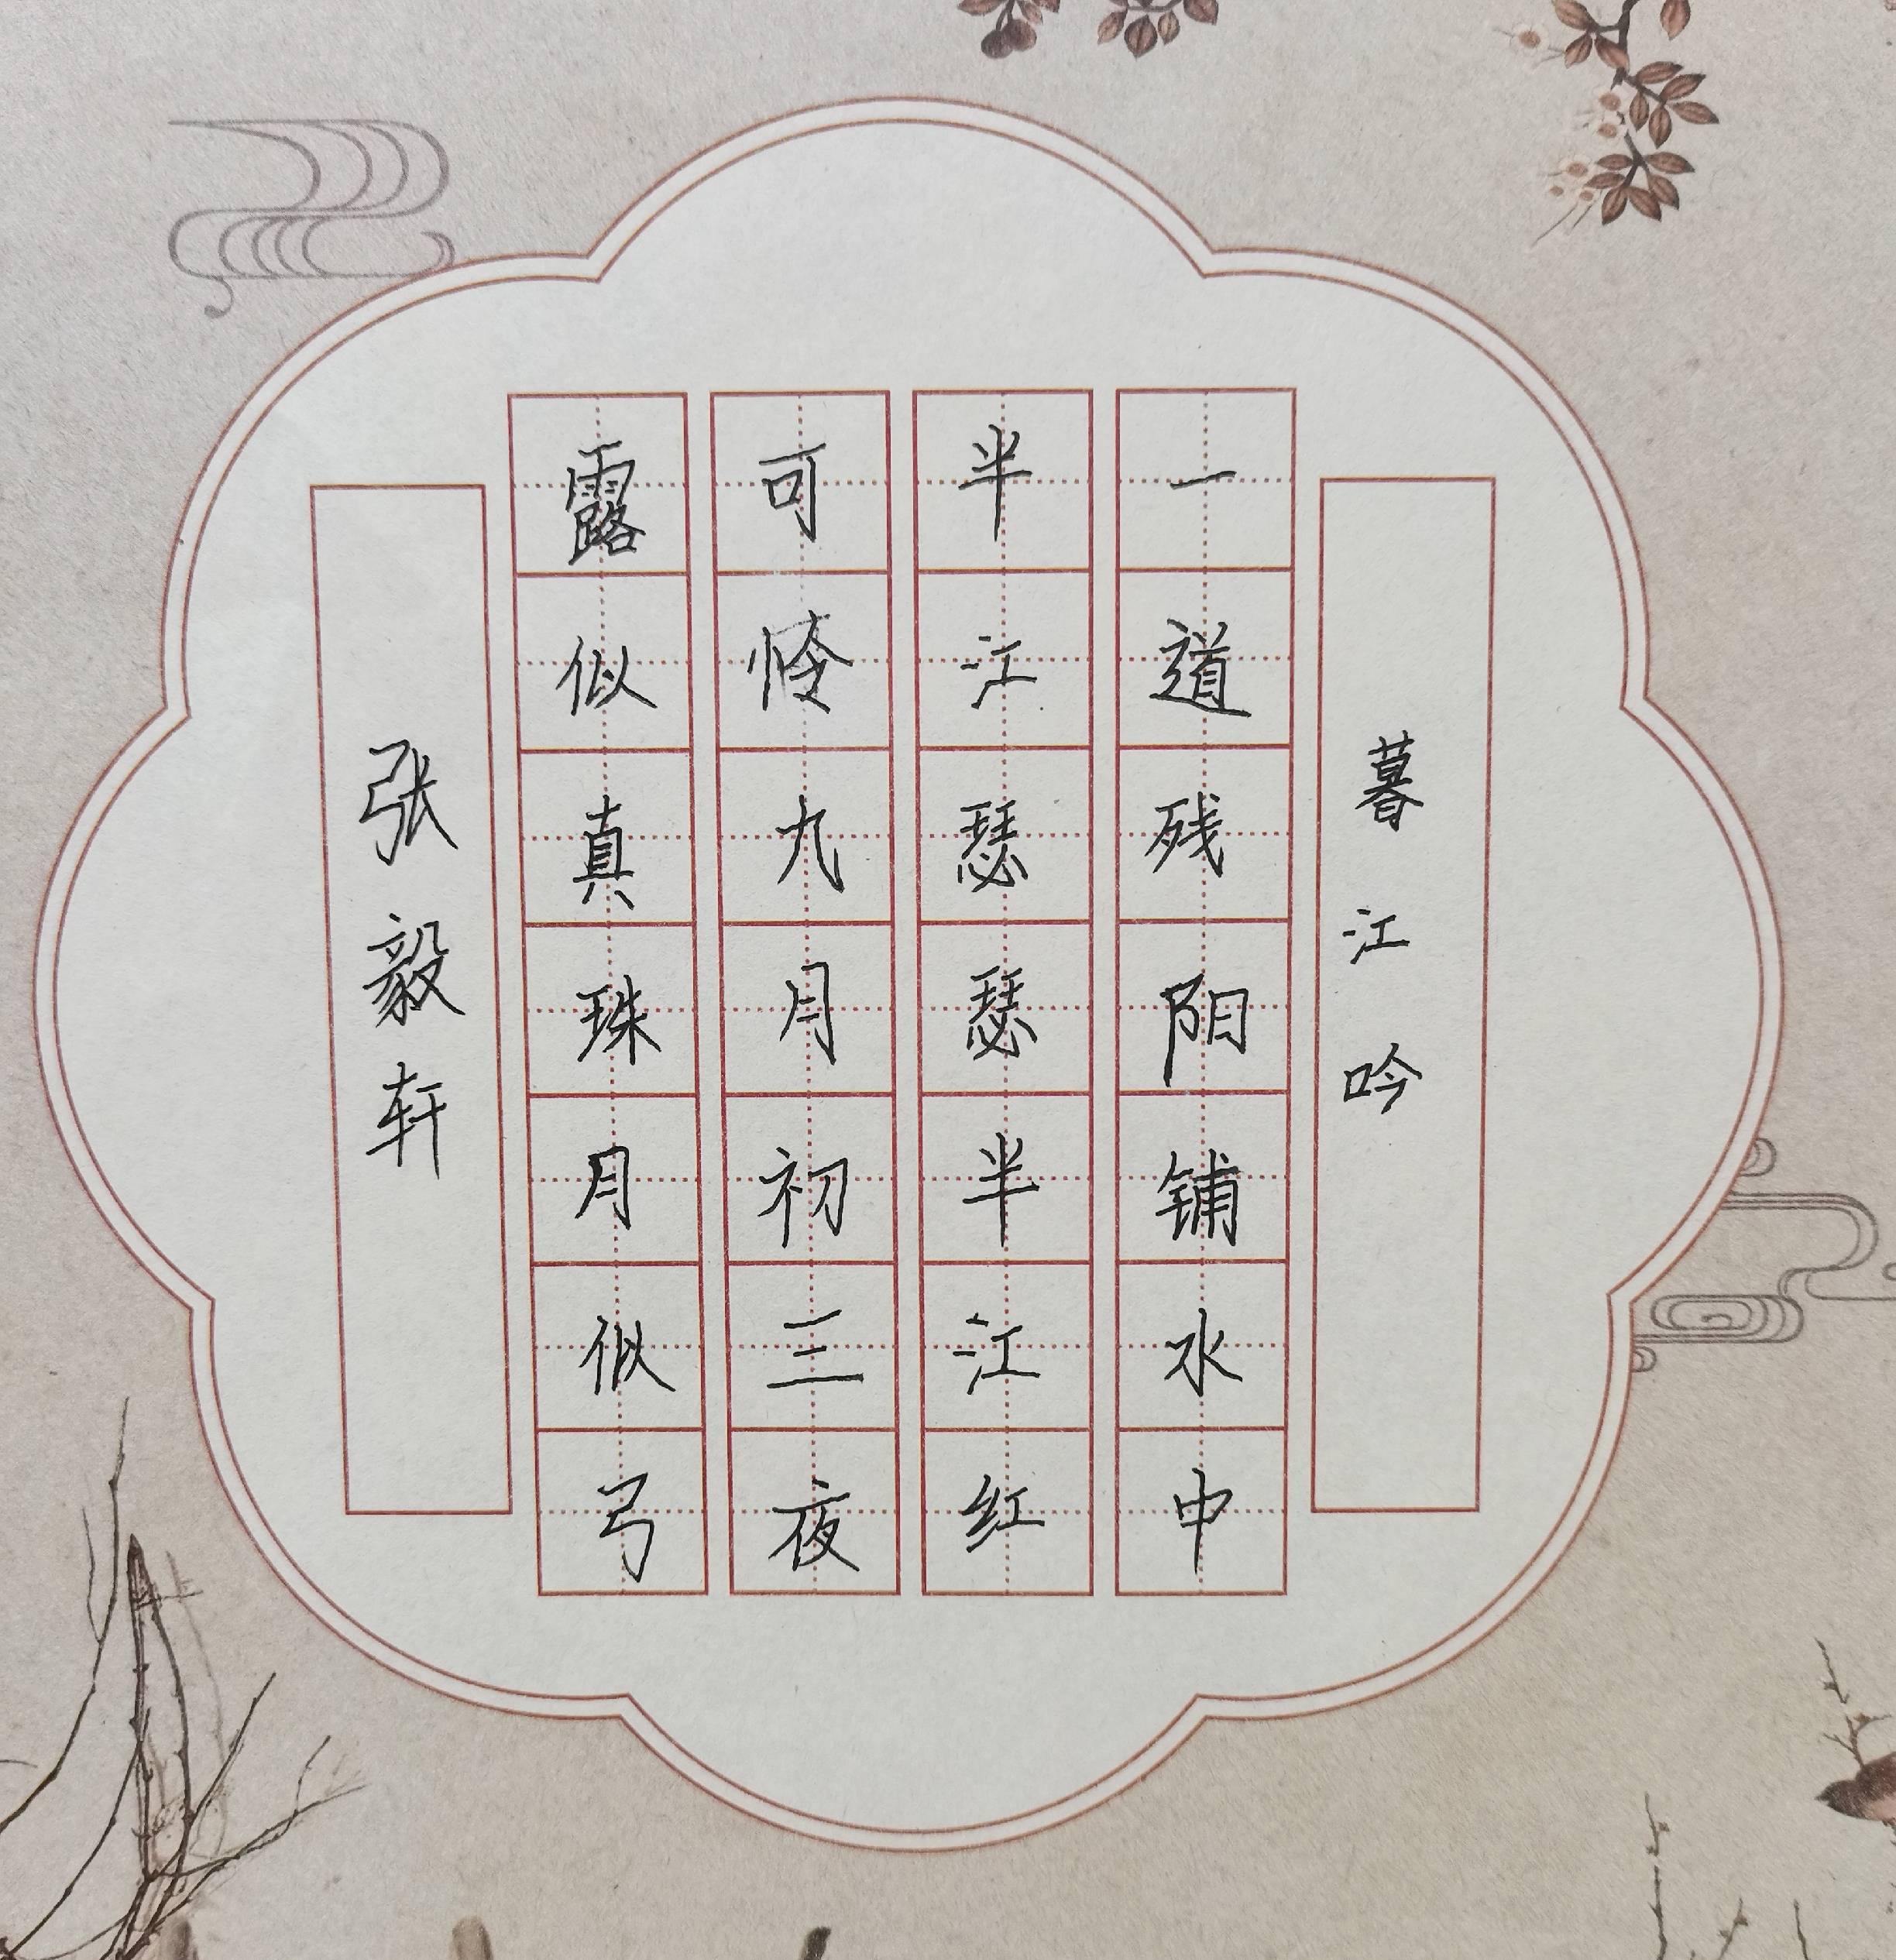 暮江吟
一道残阳铺水中
半江瑟瑟半江红
可怜九月初三夜
露似真珠月似弓
张毅轩